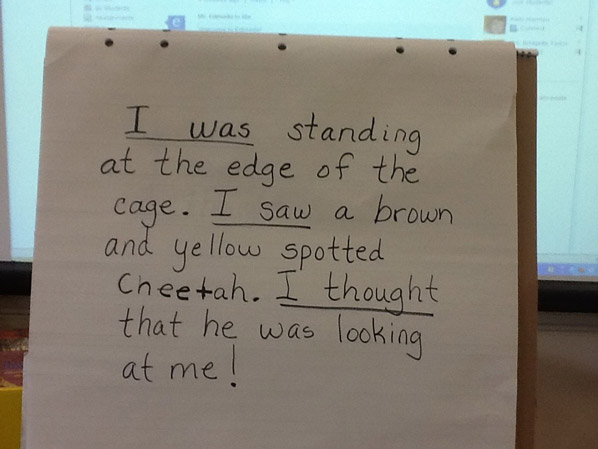 I was standing
at the edge of the
cage. I saw a brown
and yellow spotted
Cheetah. I thought
that he was looking
at me!